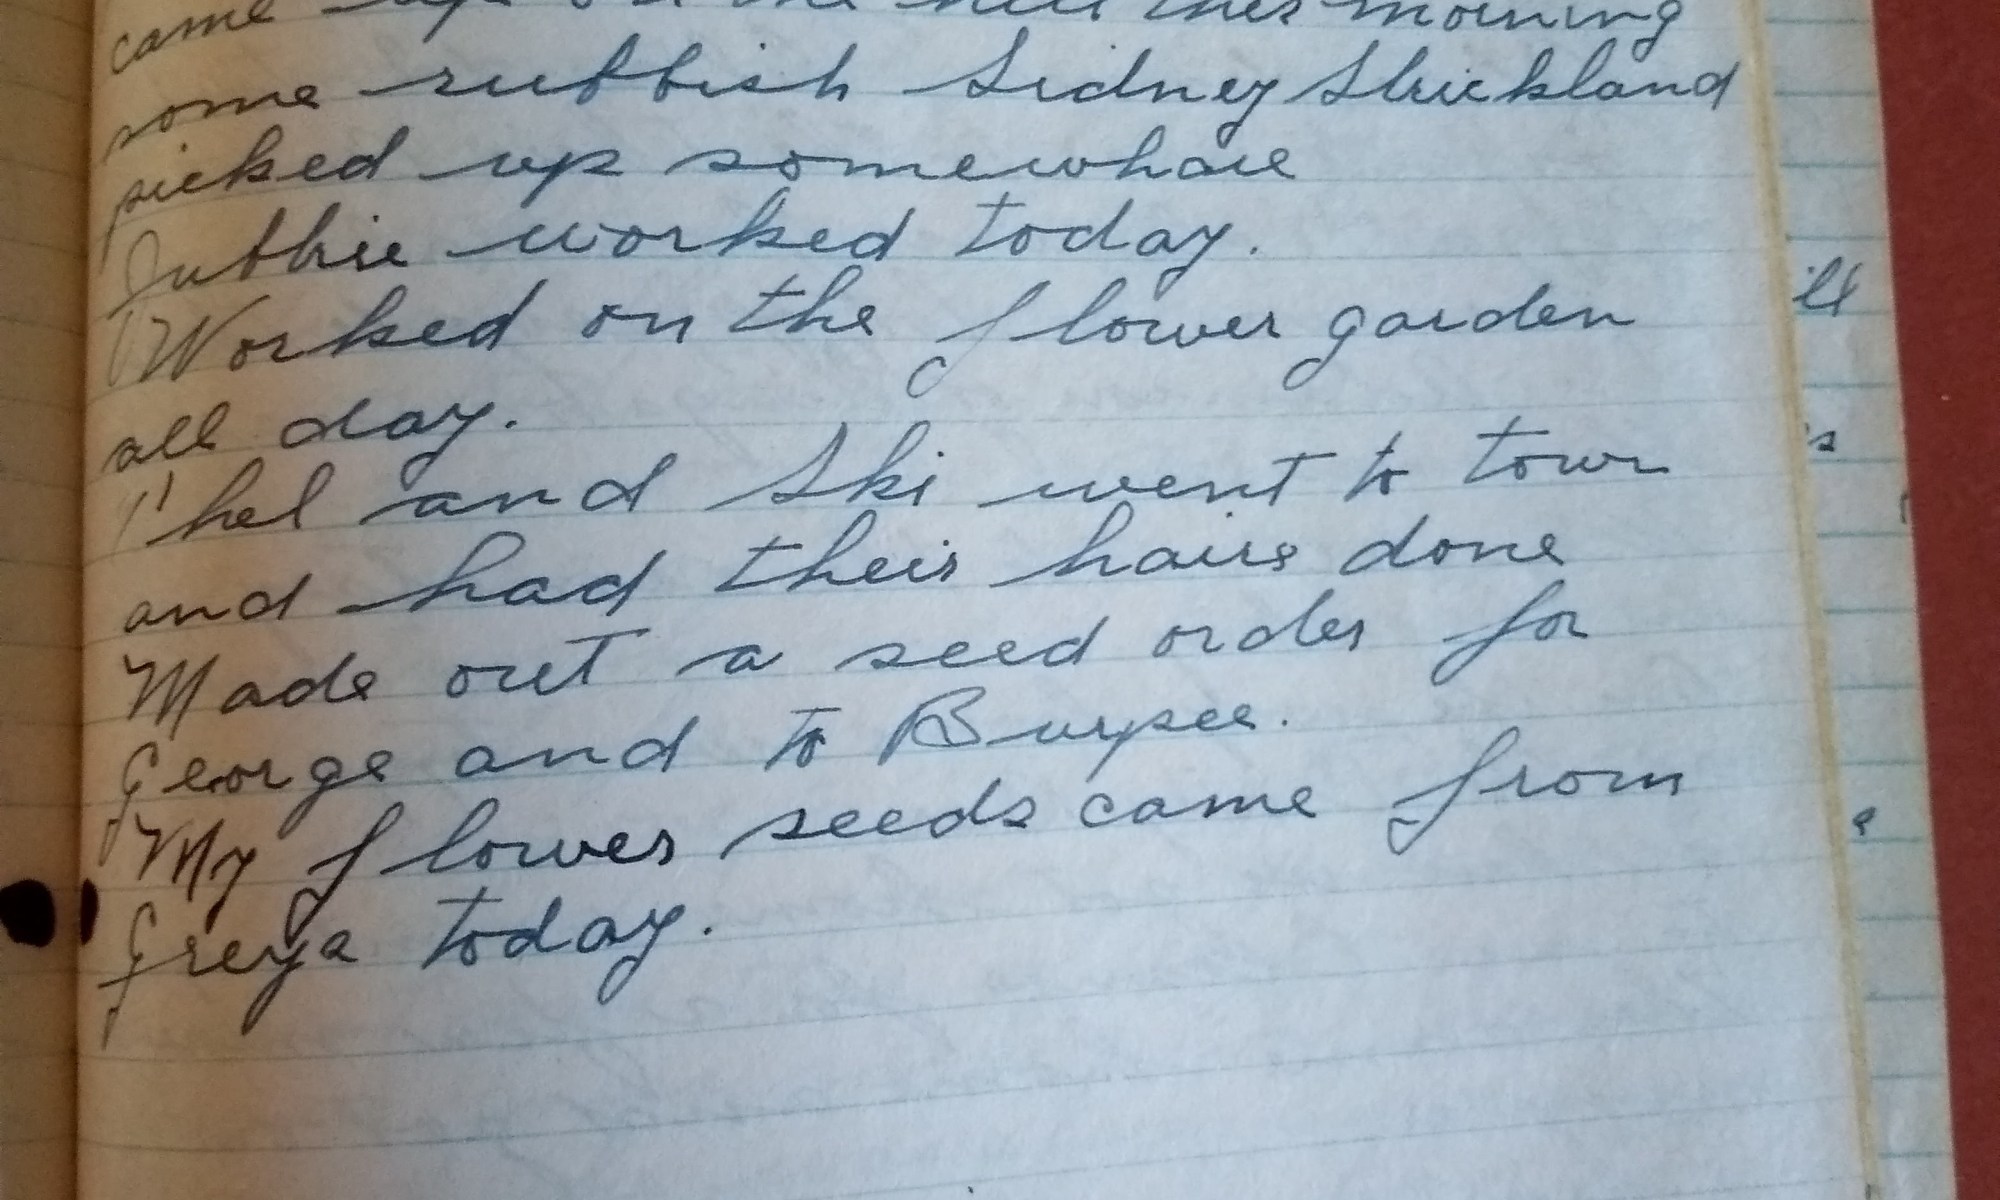 came up on the hill this morning
some rubbish Sidney Strickland
picked up somewhare
worked today.
Worked on the flower garden
all day.
Thel and Ski went to town
and had their hairs done
Made out a seed order for
George and to Burpee.
My flower seeds came from
today.